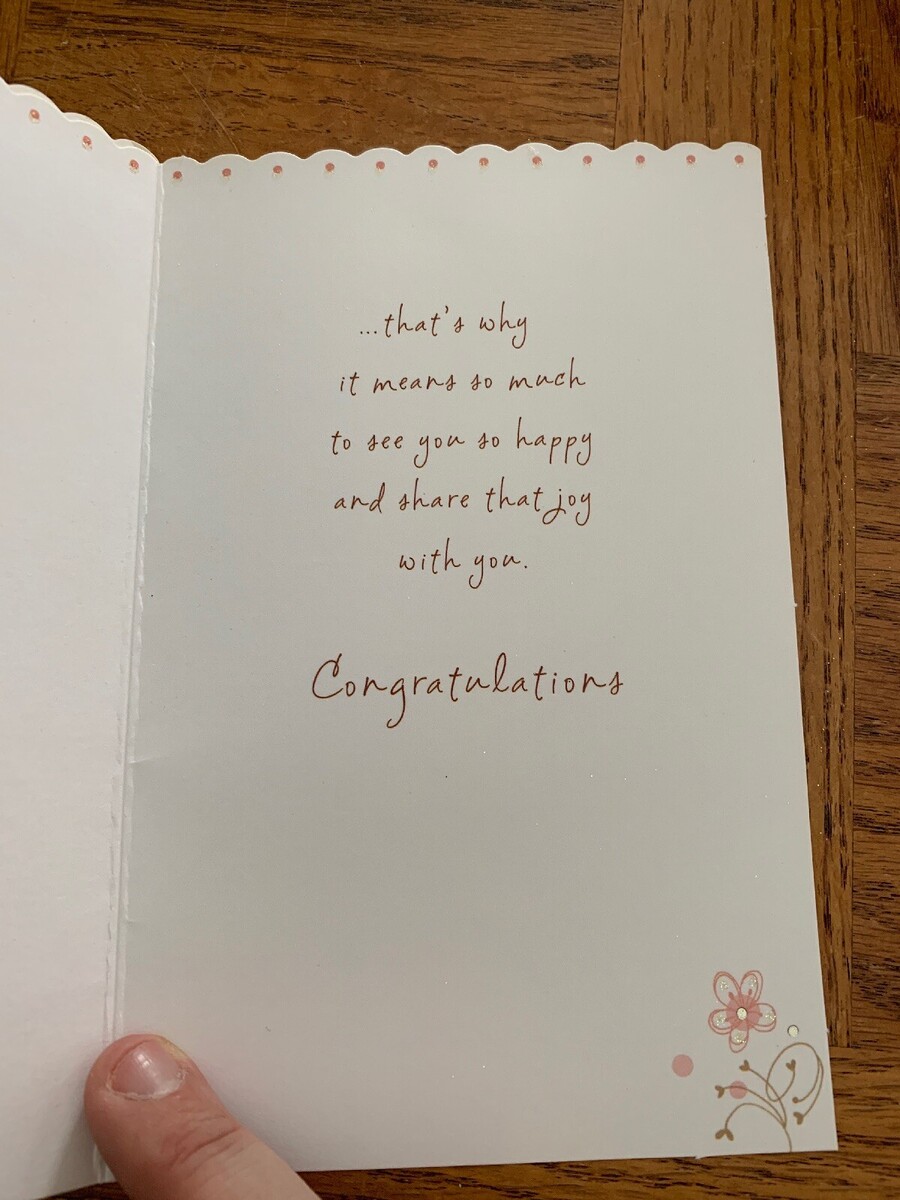 ...that's why
it means so much
to see you so happy
and share that joy
with you.
Congratulations